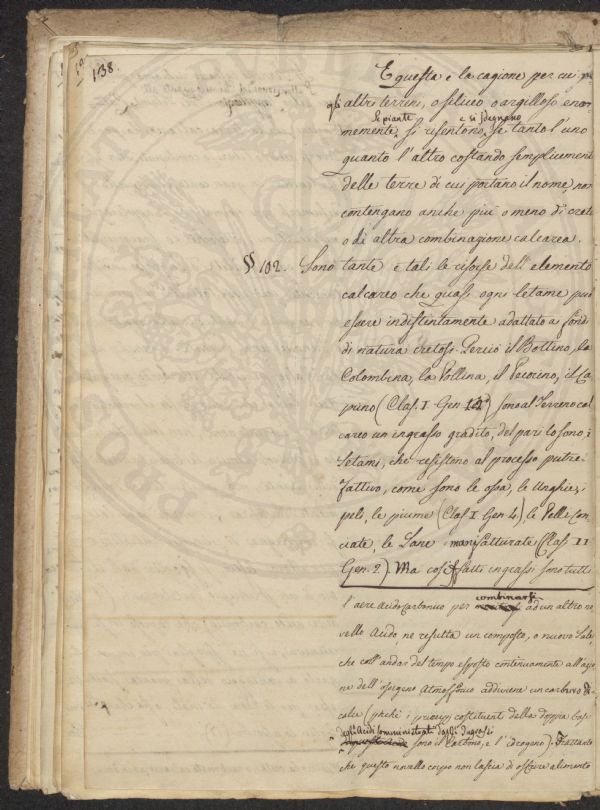 138.
E questa è la cagione per cui
gli altri terreni, o siliceo o argilloso enor
le piante e si sdegnano
memente si risentono, se tanto l'uno
quanto l'altro costando semplicement
delle terre di cui portano il nome, non
contengano anche più o meno di creta
o di altra combinazione calcarea.
§§ 102. Sono tante e tali le risorse dell'elemento
calcareo che quasi ogni letame può
essere indistintamente adattato a' fondi
di natura cretosi. Perciò il Bottino, la
Colombina, la Pollina, il Pecorino, il Ca
prino (Clas. I. Gen. 12°) sono al Terreno cal
careo un ingrasso gradito, del pari lo sono i
Letami, che resistono al processo putre-
fattivo, come sono le ossa, le Unghie, i
peli, le piume (Clas I. Gen. 4), le Pelle Con
ciate, le Lane manifatturate (Clas II
Gen. 2). Ma così fatti ingrassi sono tutti
combinarsi
l'aere Acido Carbonico per ad un altro no
vello Acido ne resulta un composto, o nuovo Sale,
che coll'andar del tempo esposto continuamente all'azio
ne dell'ossigeno Atmosferico addiviene un carburo di
calce (perchè i principj costituenti della doppia base
degli Acidi somministrati dagli Ingrassi
sono il Carbonio, e l'idrogeno). Frattanto
che questo novello corpo non lascia di essere alimento